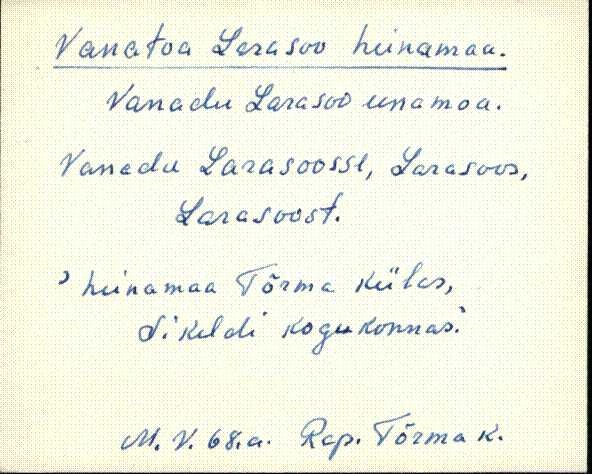 Vanatoa Larasoo heinamaa.
Vanadu Larasoo einamoa.
Vanadu Larasoosse, Larasoos,
Larasoost.
, heinamaa Tõrma külas,
Sikeldi kogukonnas.'
M. V. 68.a. Rap. Tõrma k.